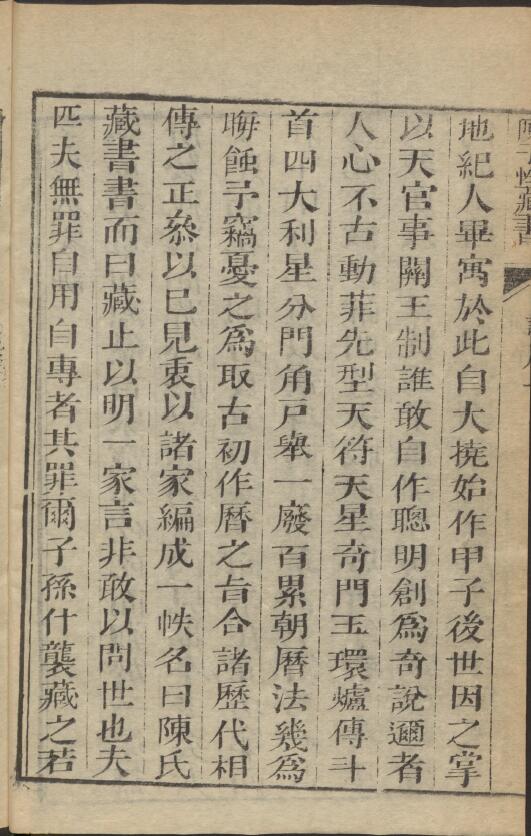 地紀人畢寓於此自大撓始作甲子後世因之掌
以天官事關王制誰敢自作聰明創爲奇說邇者
人心不古動菲先型天符天星奇門玉環爐傳斗
首四大利星分門角戸舉一廢百累朝曆法幾爲
晦蝕予竊憂之爲取古初作曆之旨合諸歷代相
傳之正叅以已見衷以諸家編成一帙名曰陳氏
藏書書而曰藏止以明一家言非敢以問世也夫
匹夫無罪自用自專者其罪爾子孫什襲藏之若